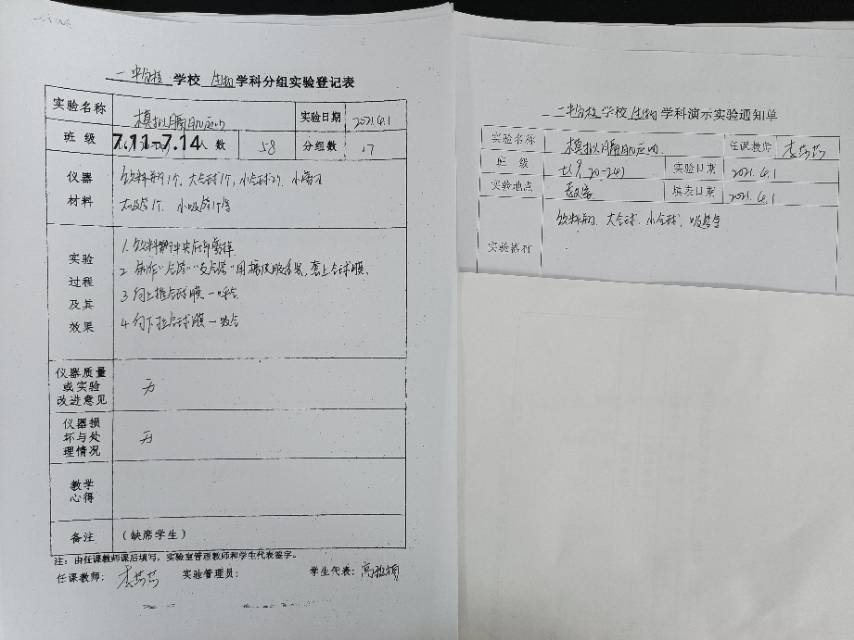 一中分校 学校 生物 学科分组实验登记表
实验名称 模拟膈肌运动 实验日期 2021.4.1
班 级 7.11-7.14 人 数 58 分组数 17
仪器 材料
饮料瓶1个、大气球1个、小气球2个、小剪刀
大吸管1个、小吸管1个
实验 过程 及其 效果
1. 饮料瓶
2. 用橡皮膜 套上气球膜.
3 向上推气球膜一呼气.
4 向下拉气球膜一吸气
仪器质量 或实验 改进意见 无
仪器损 坏与处 理情况 无
教学 心得
备注 (缺席学生)
注：由任课教师课后填写，实验室管理教师和学生代表签字。
任课教师： 实验管理员： 学生代表：
二中分校 学校 生物 学科演示实验通知单
实验名称 模拟膈肌运动. 任课教师
班 级 实验日期 2021.4.1
实验地点 教室 填表日期 2021.4.1
实验器材
饮料瓶、大气球、小气球、吸管